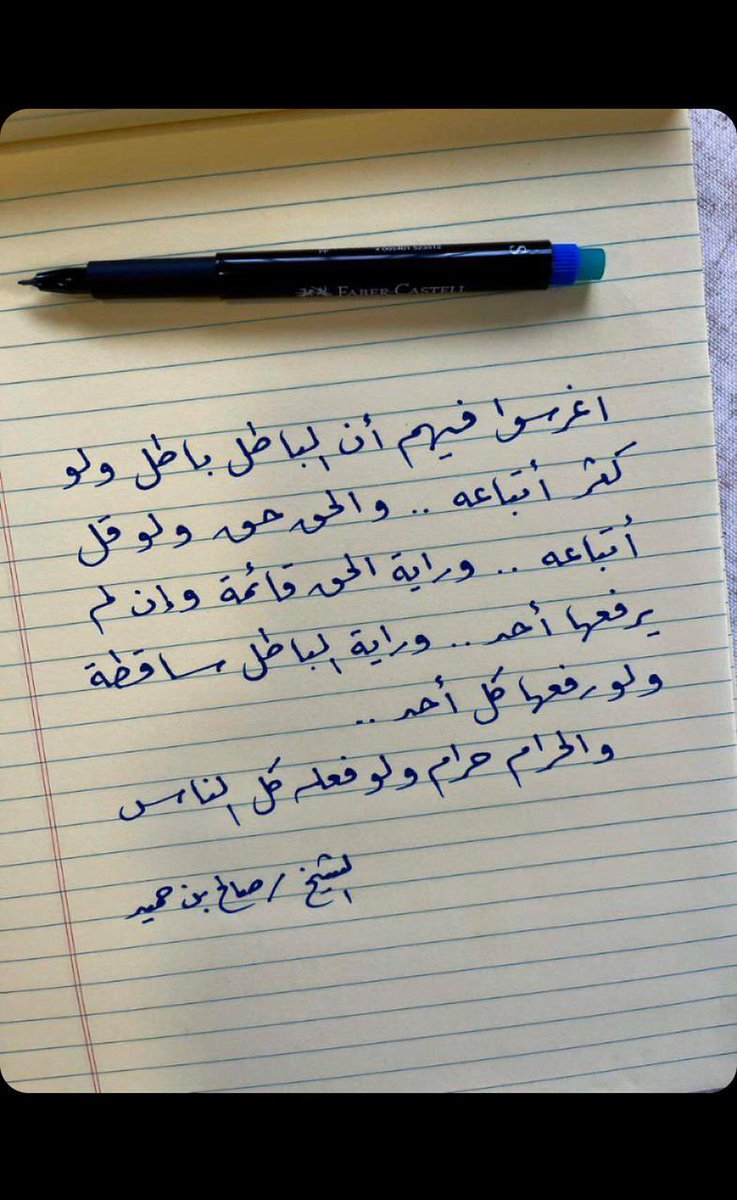 4 005401 523513
S
FABER-CASTELL
اغرسوا فيهم أن الباطل باطل ولو
كثر أتباعه .. والحق حق ولو قل
أتباعه .. وراية الحق قائمة وإن لم
يرفعها أحد .. وراية الباطل ساقطة
ولو رفعها كل أحد ..
والحرام حرام ولو فعله كل الناس
الشيخ / صالح بن حميد